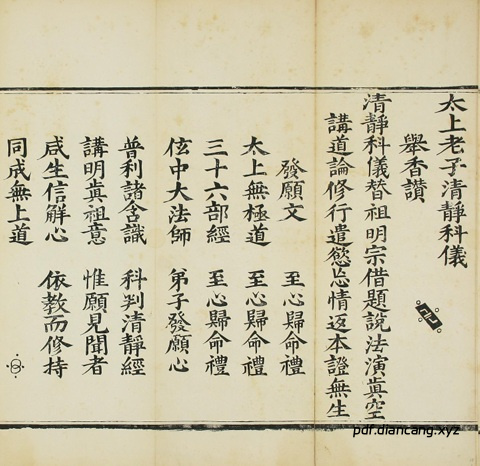 太上老子清靜科儀
舉香讚
清靜科儀替祖明宗借題說法演眞空
講道論修行遣慾忘情返本證無生
發願文 至心歸命禮
太上無極道 至心歸命禮
三十六部經 至心歸命禮
伭中大法師 弟子發願心
普利諸含識 科判清靜經
講明眞祖意 惟願見聞者
咸生信解心 依教而修持
同成無上道
pdf.diancang.xyz